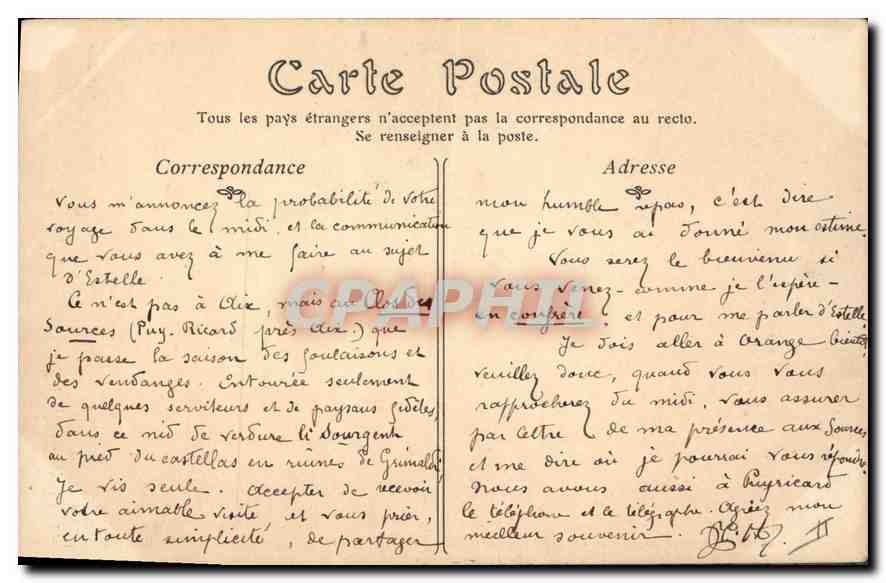 Carte Postale
Tous les pays étrangers n'acceptent pas la correspondance au recto.
Se renseigner à la poste.
Correspondance
vous m'annoncez la probabilité de votre
voyage dans le midi, et la communication
que vous avez à me faire au sujet
d'Estelle.
Ce n'est pas à Aix, mais au Clos des
Sources (Puy-Ricard près Aix.) que
je passe la saison des foulaisons et
des vendanges. Entourée seulement
de quelques serviteurs et de paysans fidèles,
dans ce nid de verdure li Sourgent
au pied du castellas en ruines de Grimaldi
Je vis seule. Accepter de recevoir
votre aimable visite et vous prier,
en toute simplicité, de partager
Adresse
mon humble repas, c'est dire
que je vous ai donné mon estime.
Vous serez le bienvenu si
vous venez - comme je l'espère -
en confrère, et pour me parler d'Estelle.
Je dois aller à Orange bientôt,
veuillez donc, quand vous vous
rapprocherez du midi, vous assurer
par lettre de ma présence aux Sources
et me dire où je pourrai vous répondre.
Nous avons aussi à Puyricard
le téléphone et le télégraphe. Agréez mon
meilleur souvenir.
II
CPAPHIL